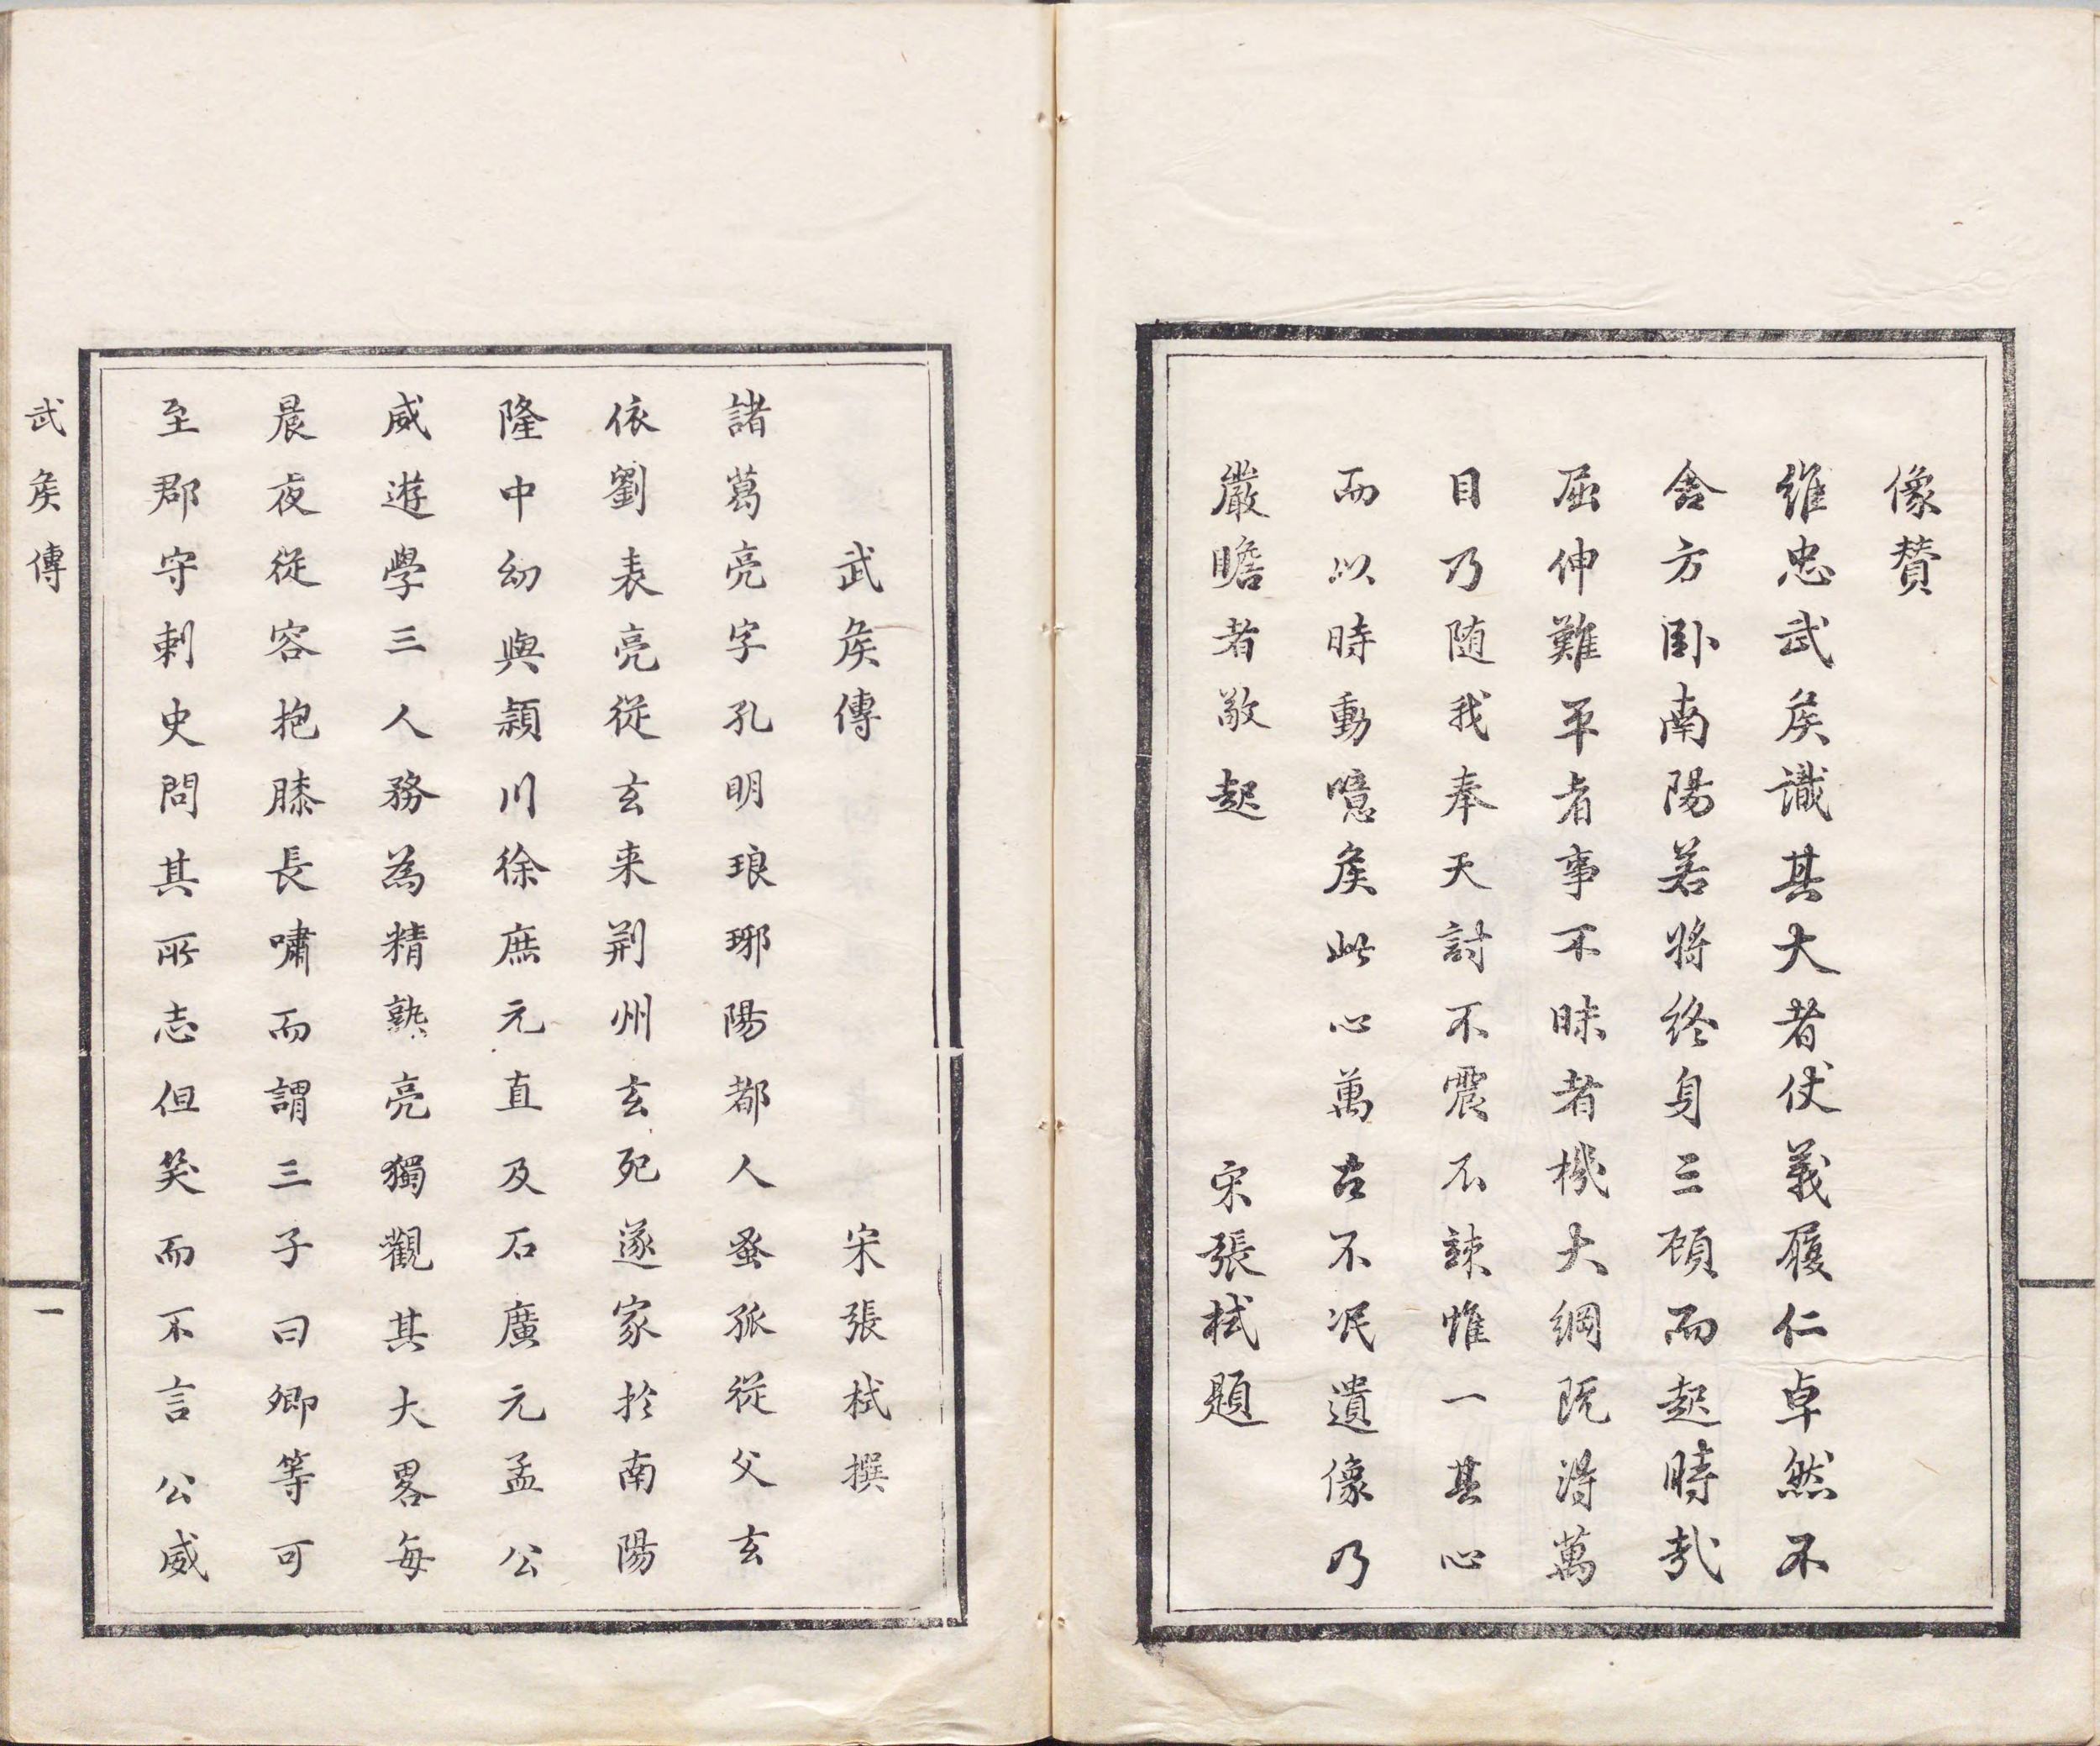 像賛
維忠武矦識其大者仗義履仁卓然不
舍方卧南陽若將終身三顧而起時哉
屈伸難平者事不昧者機大綱既得萬
目乃随我奉天討不震不竦惟一其心
而以時動噫矦此心萬古不泯遺像乃
嚴瞻者敬起　宋張栻題
武矦傳　宋張栻撰
諸葛亮字孔明琅琊陽都人蚤孤從父玄
依劉表亮從玄来荆州玄死遂家於南陽
隆中幼與潁川徐庶元直及石廣元孟公
威遊學三人務為精熟亮獨觀其大畧每
晨夜從容抱膝長嘯而謂三子曰卿等可
至郡守刺史問其所志但笑而不言公威
武矦傳　一